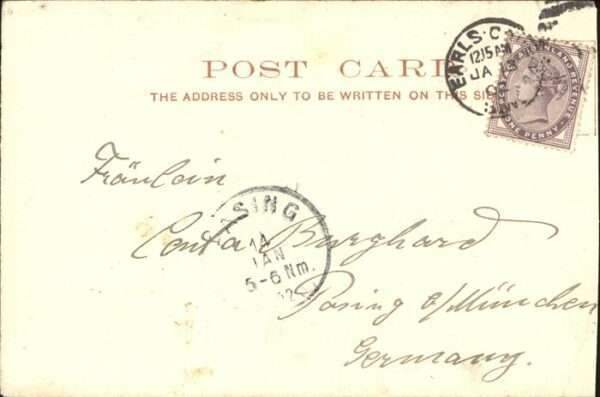 POST CARD
THE ADDRESS ONLY TO BE WRITTEN ON THIS SIDE
EARLS C
12.15 AM
JA
POSTAGE & INLAND REVENUE
ONE PENNY
Fräulein
Centa Burghard
Pasing b/München
Germany.
SING
14
JAN
5-6 Nm.
02